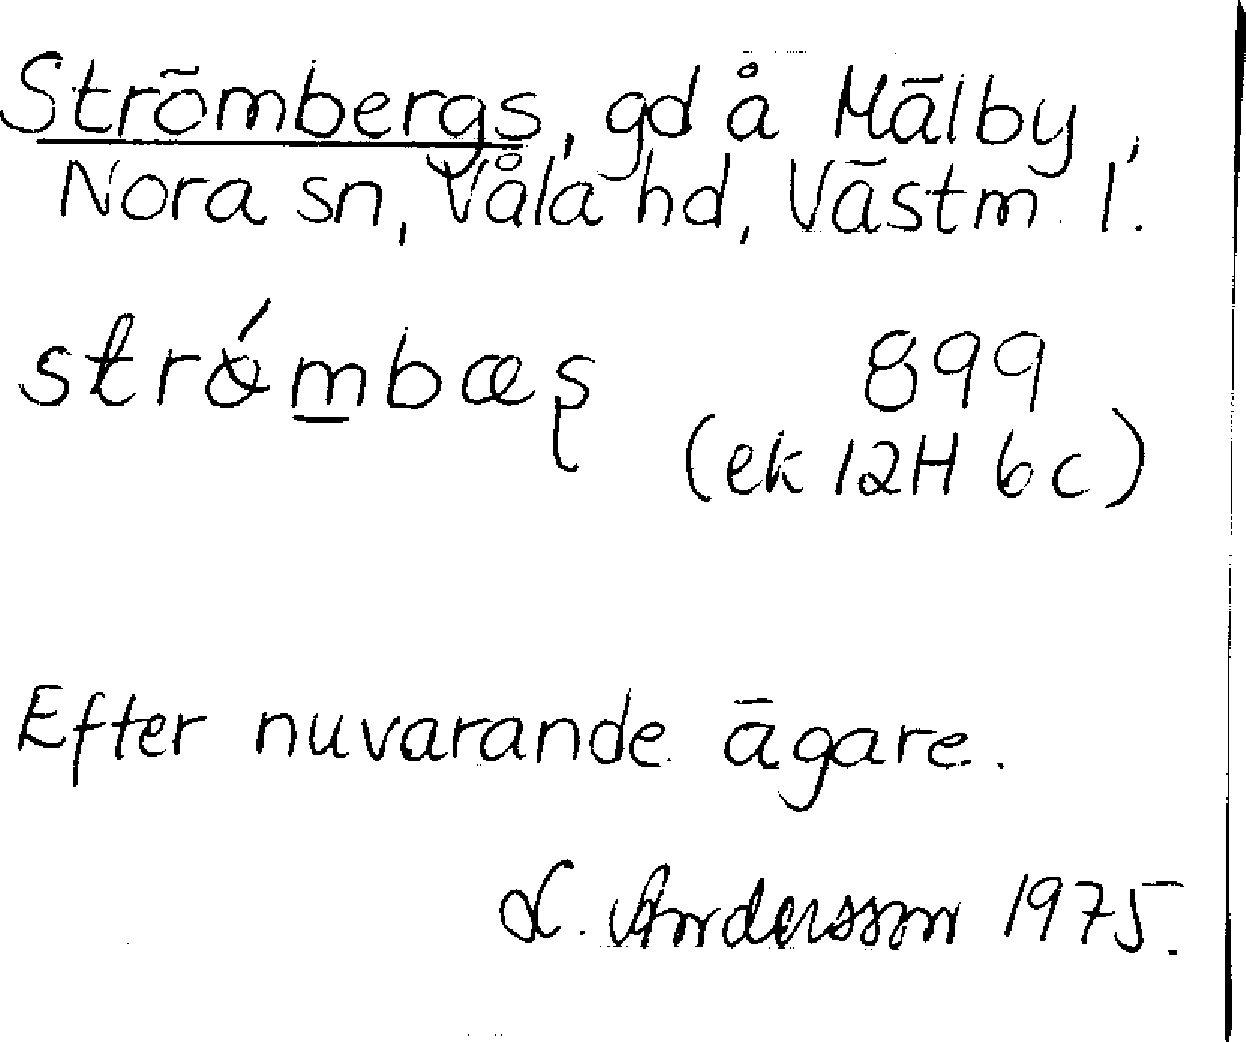 Strömbergs, gd å Mälby,
Nora sn, Våla hd, Västm l.
strǿmbæş 899
(ek 12H 6c)
Efter nuvarande ägare.
L. Andersson 1975.